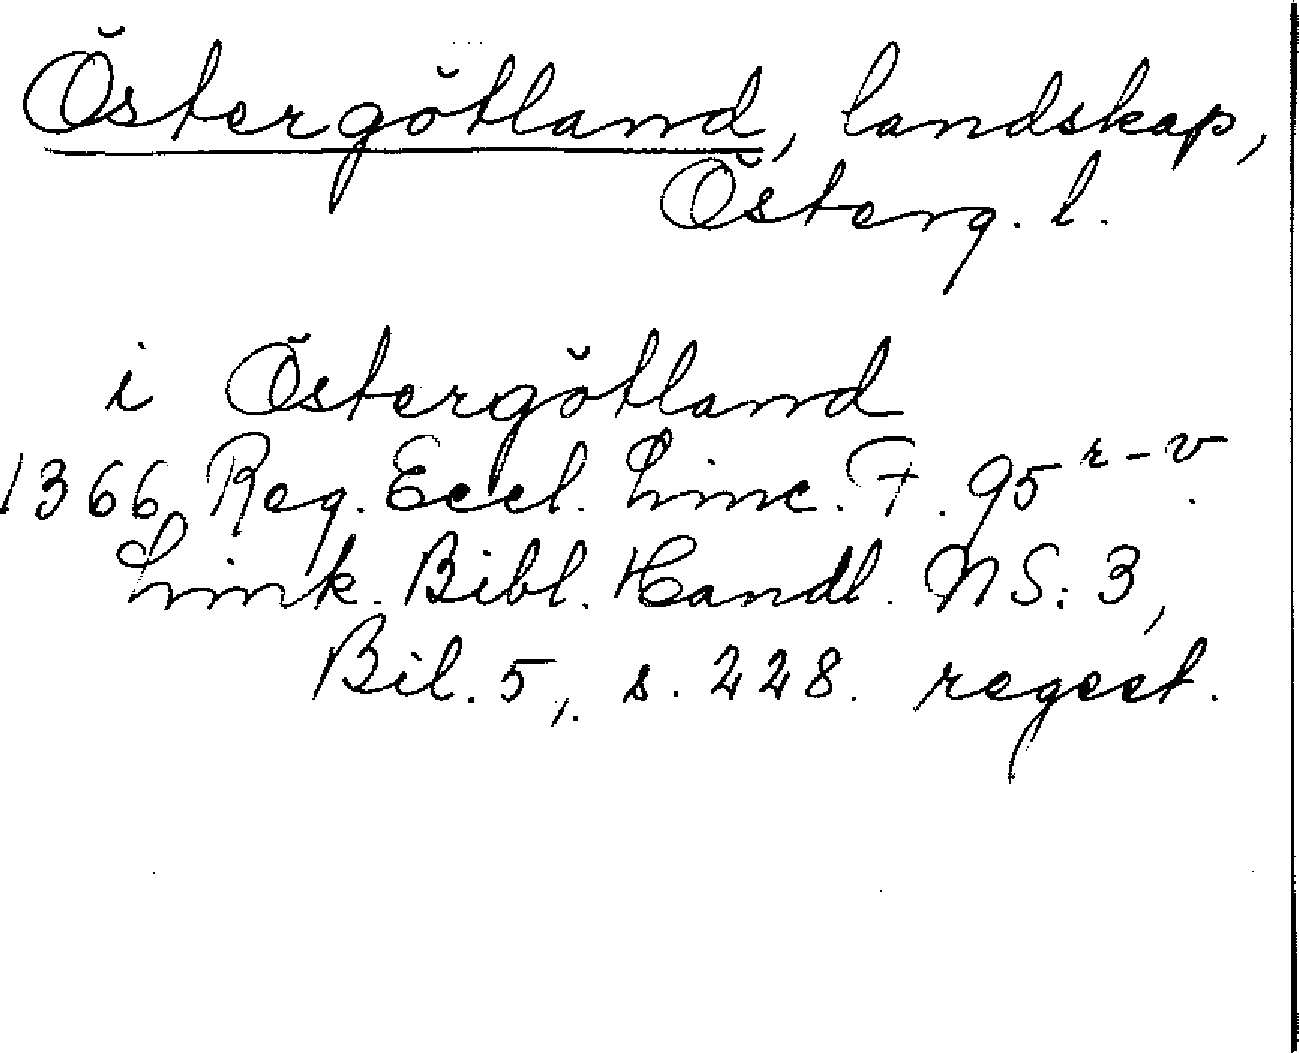 Östergötland, landskap,
Österg. l.
i Östergötland
1366 Reg. Eccl. Linc. F. 95 r-v.
Link. Bibl. Handl. NS: 3,
Bil. 5, s. 228. regest.